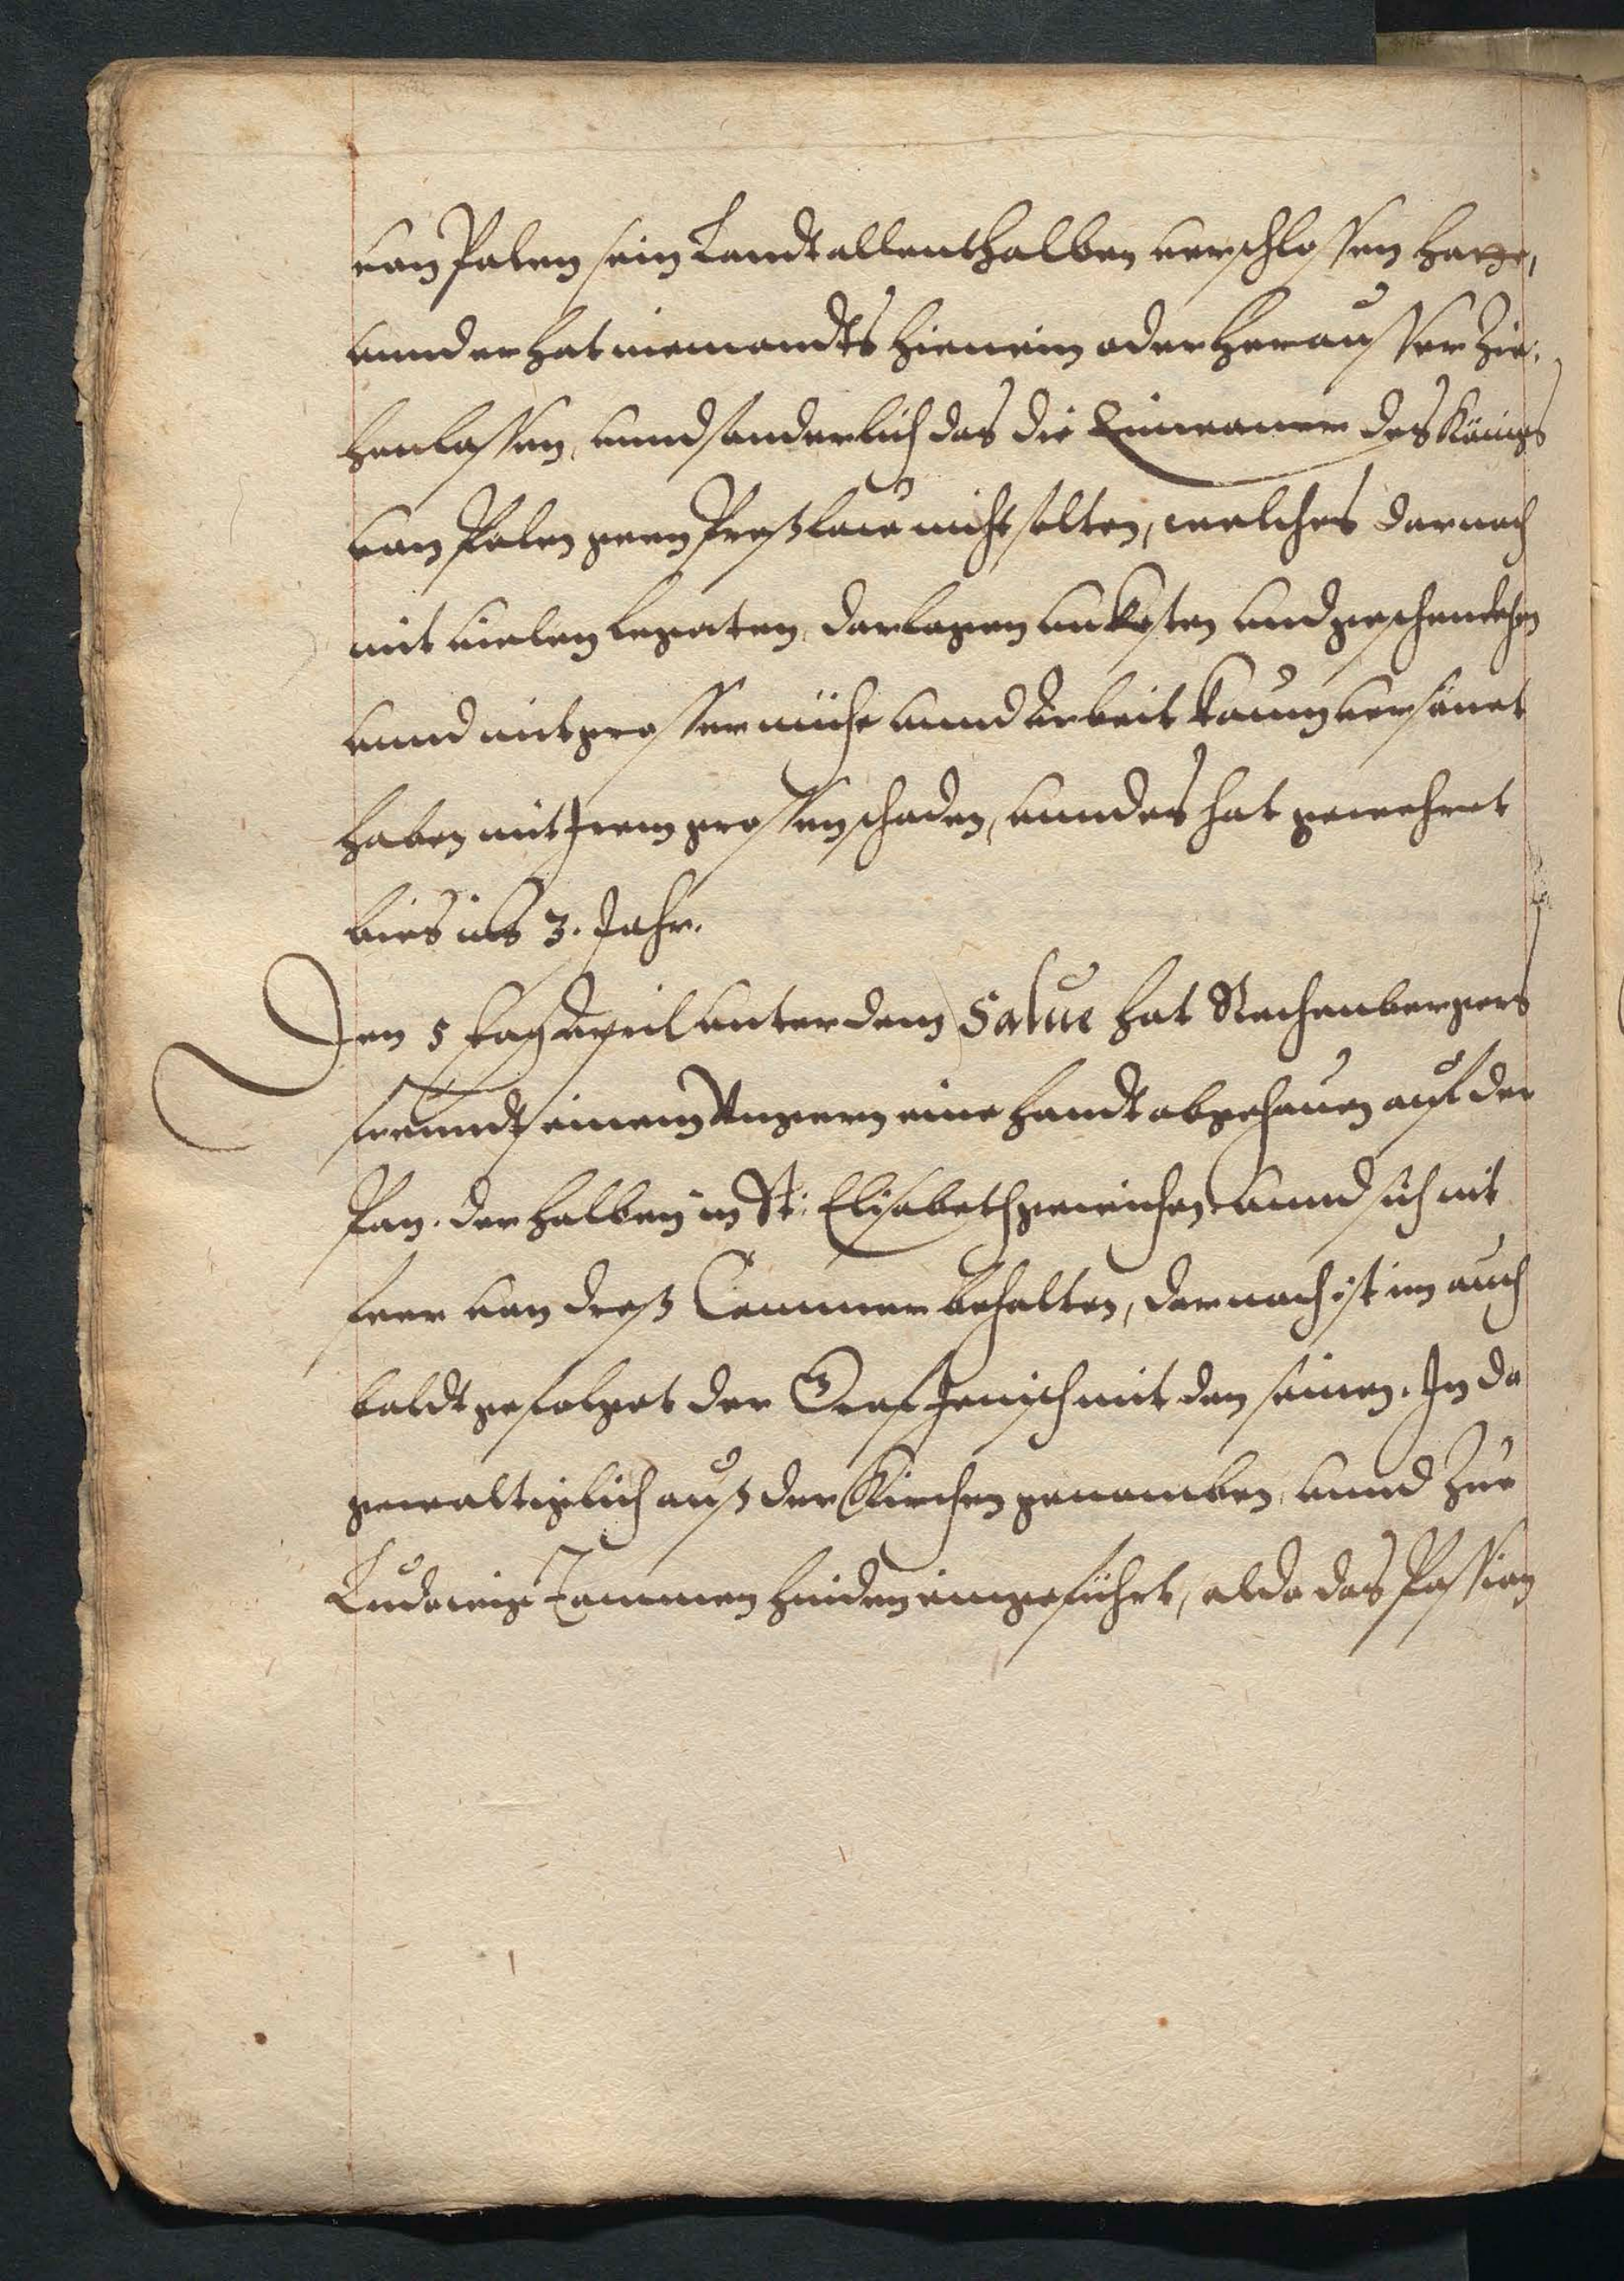 von Polen sein Landt allenthalben verschlossen hatte,
vnnd er hat niemandts hienein oder heraussen Zie:
hen lassen, vnnd sonderlich das die Einwoner des Königs
von Polen geen Preßlaw nicht solten, welches darnach
mit vielen Legaten, darlegen vnkosten vnd geschencken
vnnd mit grosser mühe vnnd Arbeit kaum versönet
haben mit Irem grossen schaden, vnnd es hat gewehret
bies ins 3. Jahr.
Den 5 tag April vnter dem Salue hat Rechenbergers
freundt einem Vngern eine Handt abgehauen auf der
Pan. derhalben in St: Elisabeth gewichen vnnd sich mit
seer von dreß Cammer behalten, darnach ist im auch
baldt gefolget der Graf Jenisch mit den seinen. In da
gewaltiglich auß der Kirchen genomben, vnnd Zue
Ludewig Tommen hinden eingeführt, alda das Passion